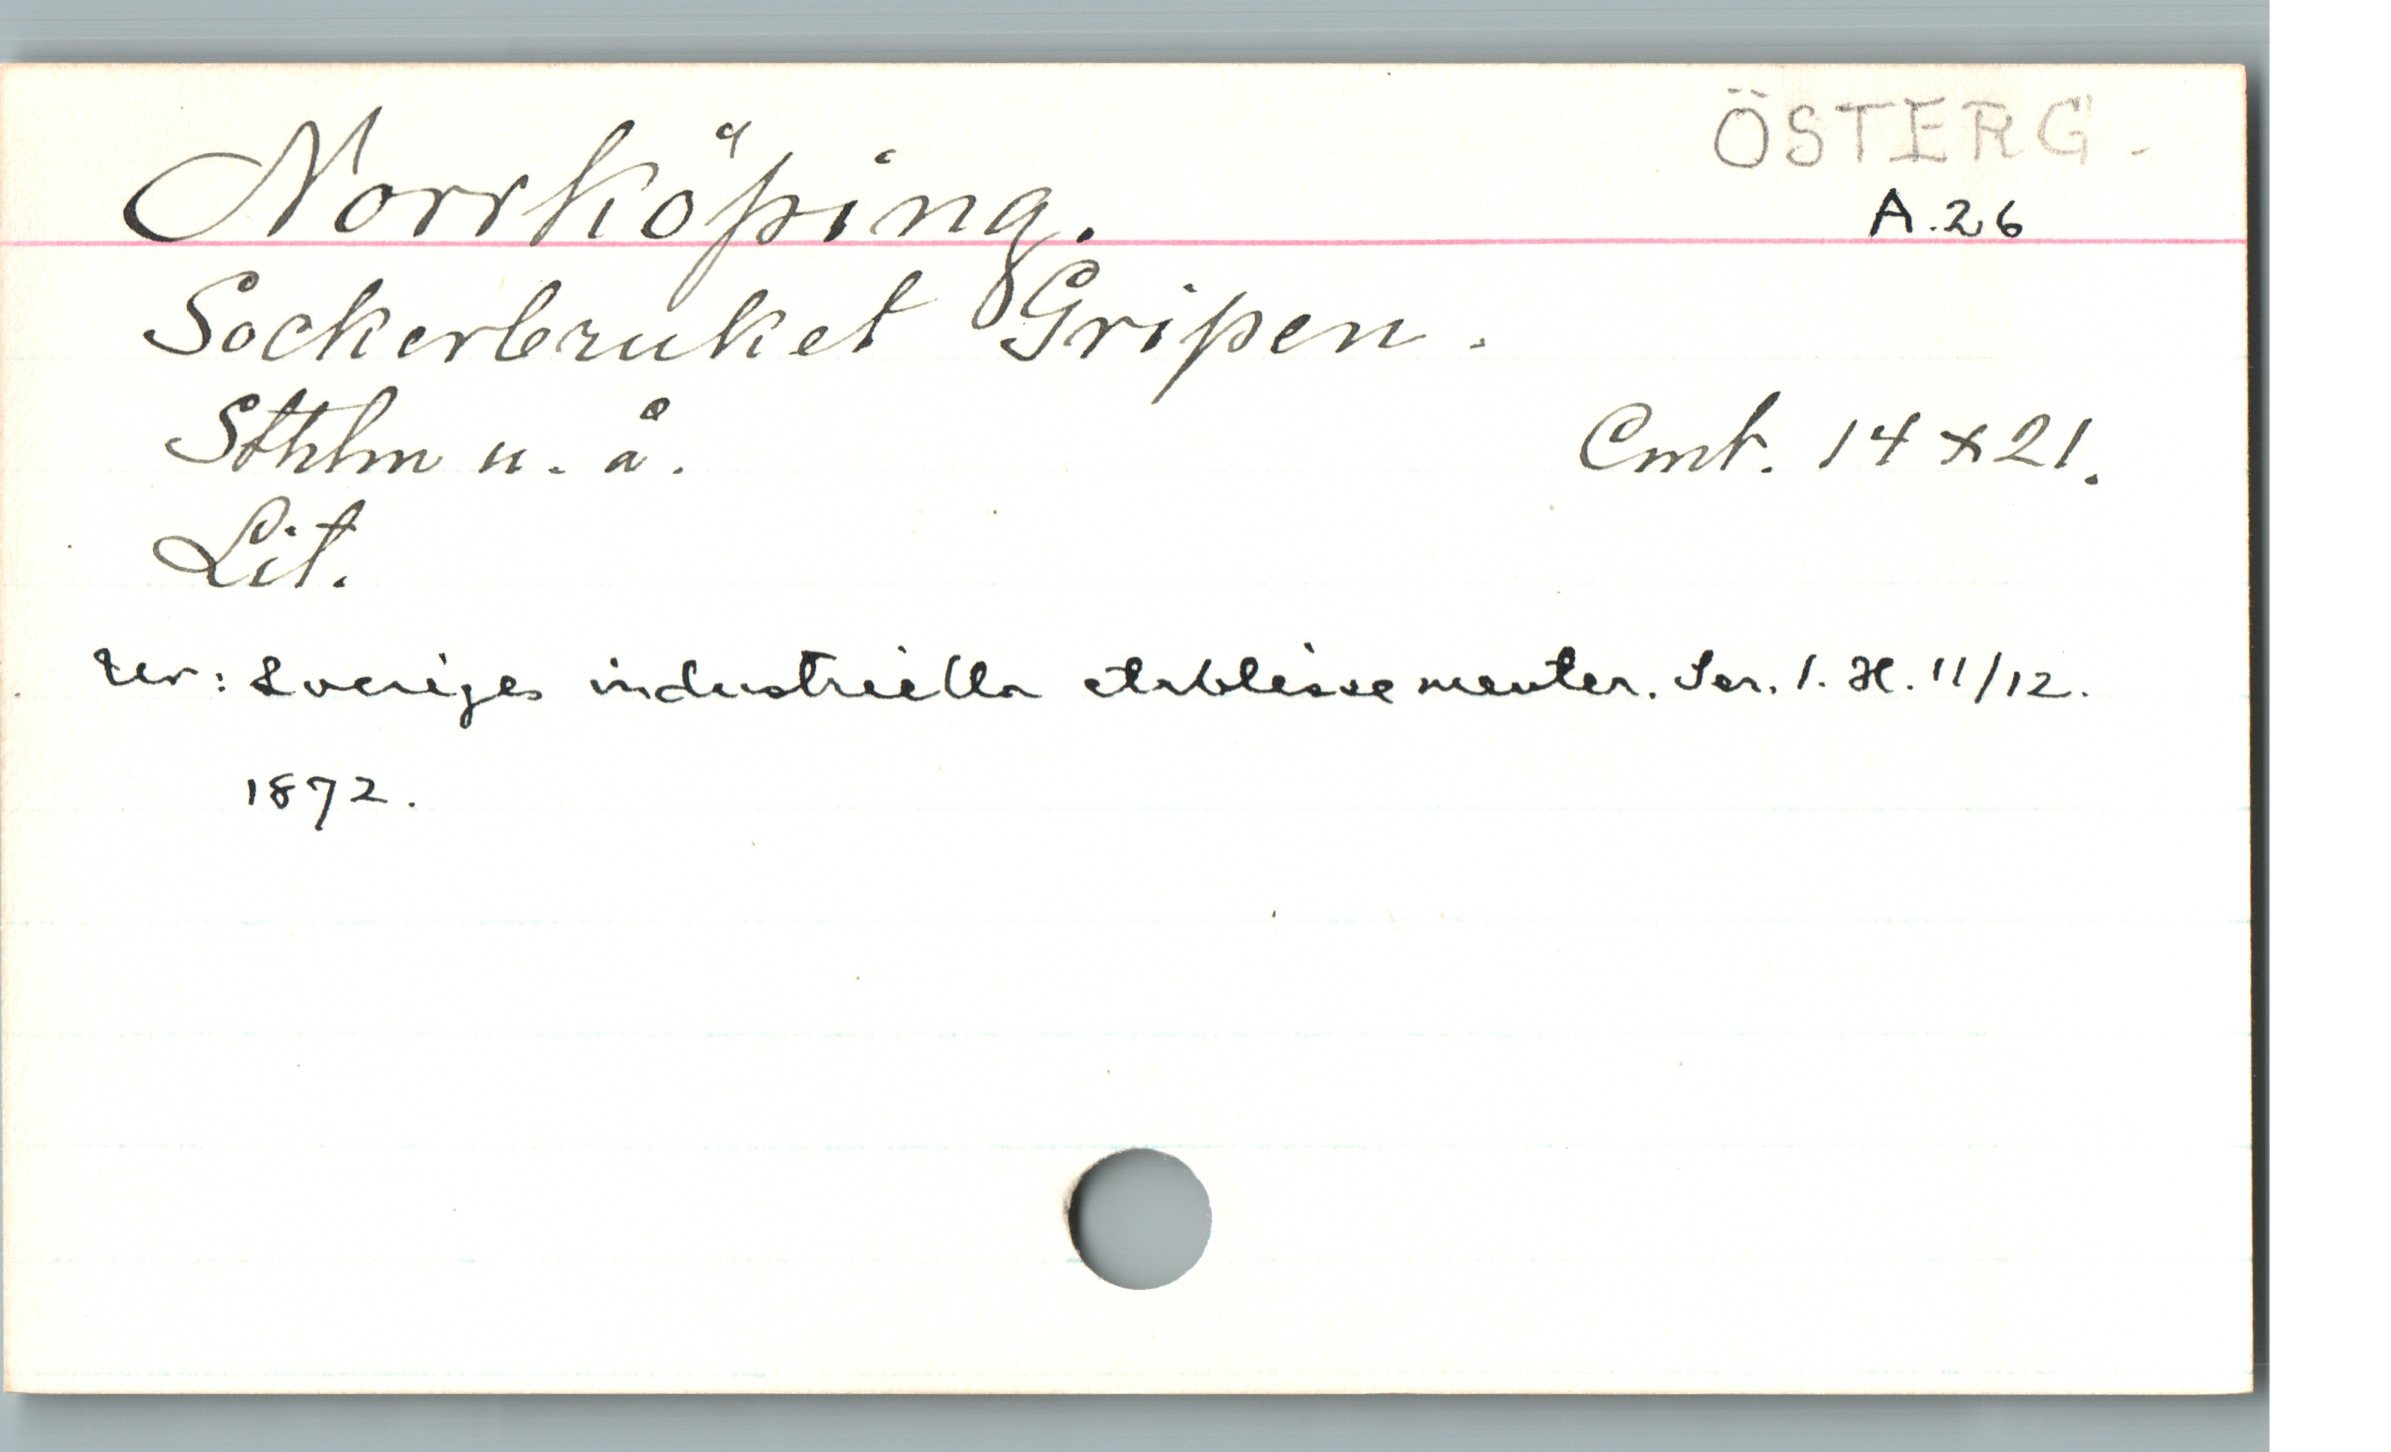 ÖSTERG.
Norrköping.
A.26
Sockerbruket Gripen.
Sthlm u. å.
Cmt. 14 x 21.
Lit.
Ur: Sveriges industriella etablissementer. Ser. 1. H. 11/12.
1872.